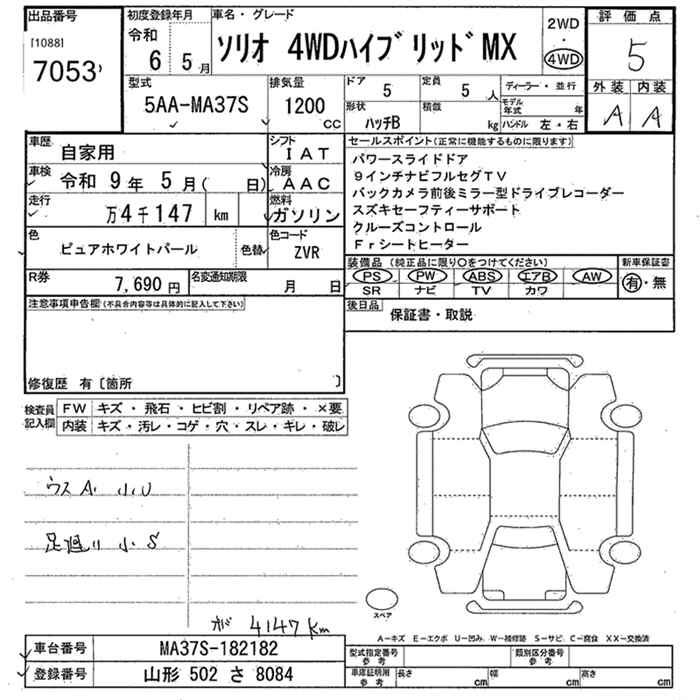 出品番号
[1088]
7053
初度登録年月
令和
6 5月
車名・グレード
ソリオ 4WDハイブリッドMX
2WD
・
4WD
評価点
5
外装 内装
A A
型式
5AA-MA37S
排気量
1200
cc
ドア
5
定員
5 人
形状
ハッチB
積載
kg
ディーラー・並行
モデル年式 年
ハンドル 左・右
車歴
自家用
シフト
IAT
車検
令和 9年 5月( 日)
冷房
AAC
走行
万4千147 km
燃料
ガソリン
色
ピュアホワイトパール
色替
色コード
ZVR
R券
7,690 円
名変通知期限
月 日
セールスポイント(正常に機能するものに限ります)
パワースライドドア
9インチナビフルセグTV
バックカメラ前後ミラー型ドライブレコーダー
スズキセーフティーサポート
クルーズコントロール
Frシートヒーター
装備品(純正品に限り○をつけてください)
PS PW ABS エアB AW
SR ナビ TV カワ
新車保証書
有・無
後日品
保証書・取説
注意事項申告欄(不具合内容等は具体的に記入して下さい)
修復歴 有〔箇所 〕
検査員記入欄
FW キズ・飛石・ヒビ割・リペア跡・×要
内装 キズ・汚レ・コゲ・穴・スレ・キレ・破レ
ウスA. 小U
足廻り 小S
4147km
スペア
A−キズ E−エクボ U−凹み W−補修跡 S−サビ C−腐食 XX−交換済
車台番号
MA37S-182182
登録番号
山形 502 さ 8084
型式指定番号
参考
類別区分番号
参考
車庫証明用
参考
長さ cm
幅 cm
高さ cm